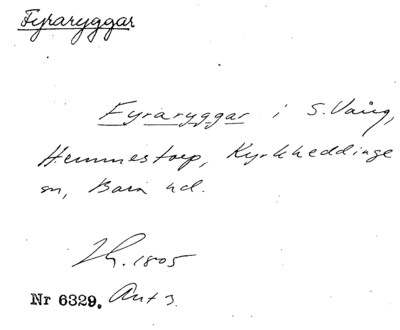 Fyraryggar
Fyraryggar i S. Vång,
Hemmestorp, Kyrkheddinge
sn, Bara hd.
1805
Nr 6329. Ant 3.